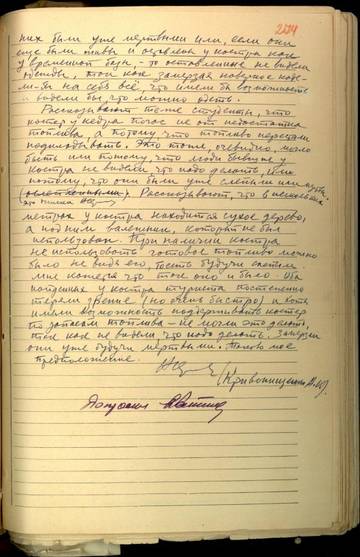 274
них были уже мертвыми или, если они
еще были живы и оставлен у костра как
у временной базы, - то оставленные не видели
одежды, так как замерзая наверное наде-
ли-бы на себя всё, что имели бы возможность
и видели бы, что можно одеть.
Рассказывают тоже студенты, что
костер у кедра погас не от недостатка
топлива, а потому что топливо перестали
подкладывать. Это тоже, очевидно, могло
быть или потому, что люди бывшие у
костра не видели что надо делать, или
потому, что они были уже слепыми или
Рассказывают, что в нескольких
метрах у костра находится сухое дерево,
а под ним валежник, который не был
использован. При наличии костра
не использовать готовое топливо можно
было не видя его, то есть будучи слепым
мне кажется что так оно и было. На
у костра туриста постепенно
теряли зрение (но очень быстро) и хотя
имели возможность поддерживать костер
по запасам топлива - не могли это делать,
так как не видели что надо делать. Замерзли
они уже будучи мертвыми. Таково мое
предположение.
(Кривонищенко А.К).
Допросил